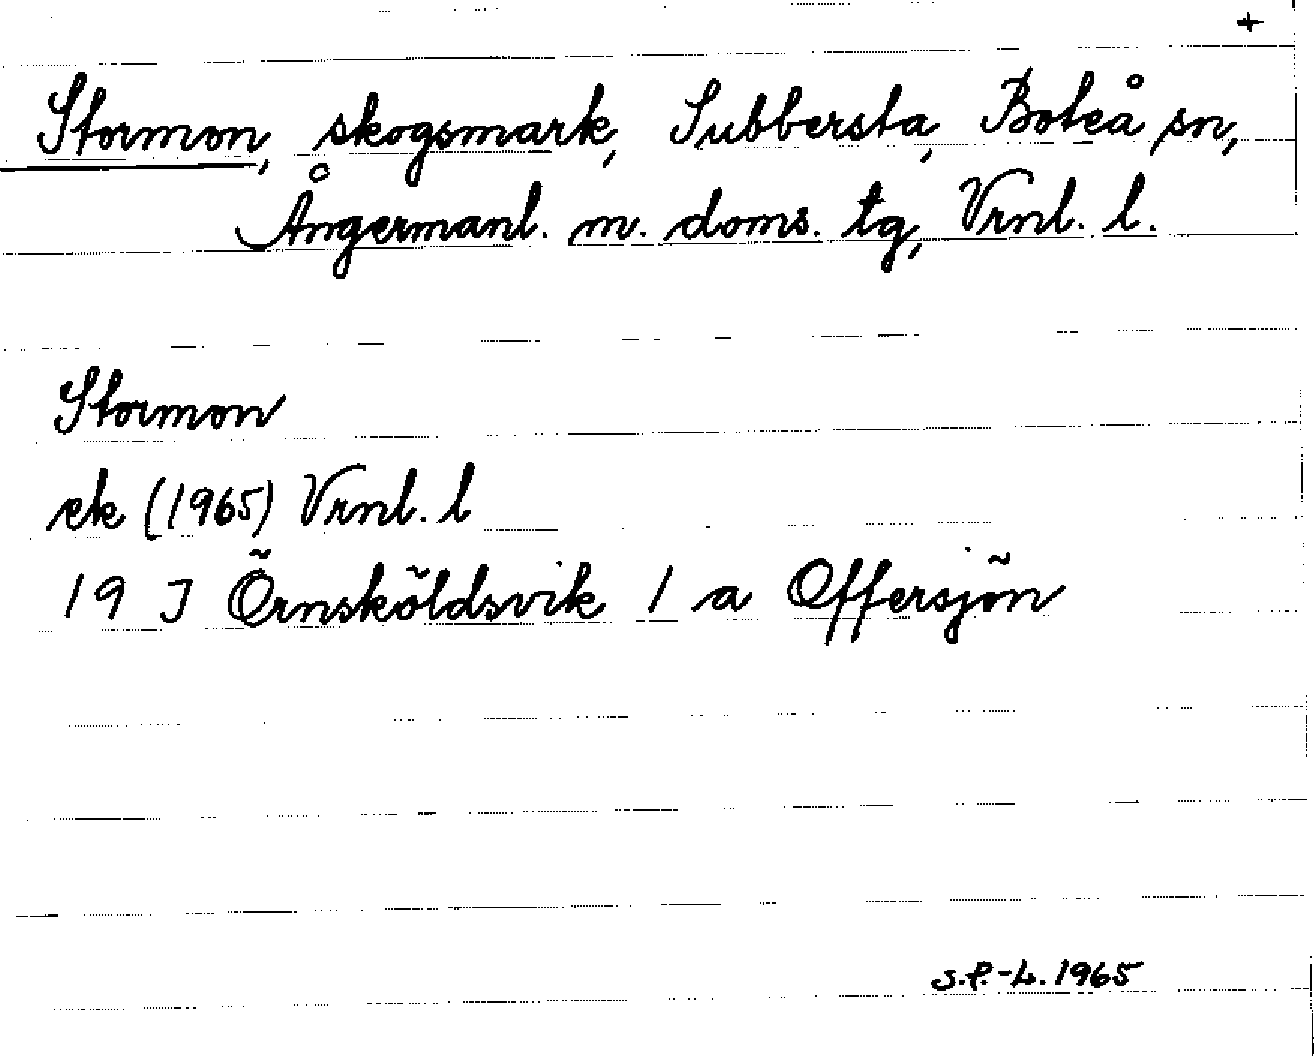 +
Stormon, skogsmark, Subbersta, Boteå sn,
Ångermanl. m. doms. tg, Vrnl. l.
Stormon
ek (1965) Vrnl. l
19 J Örnsköldsvik 1 a Offersjön
S.P.-L. 1965